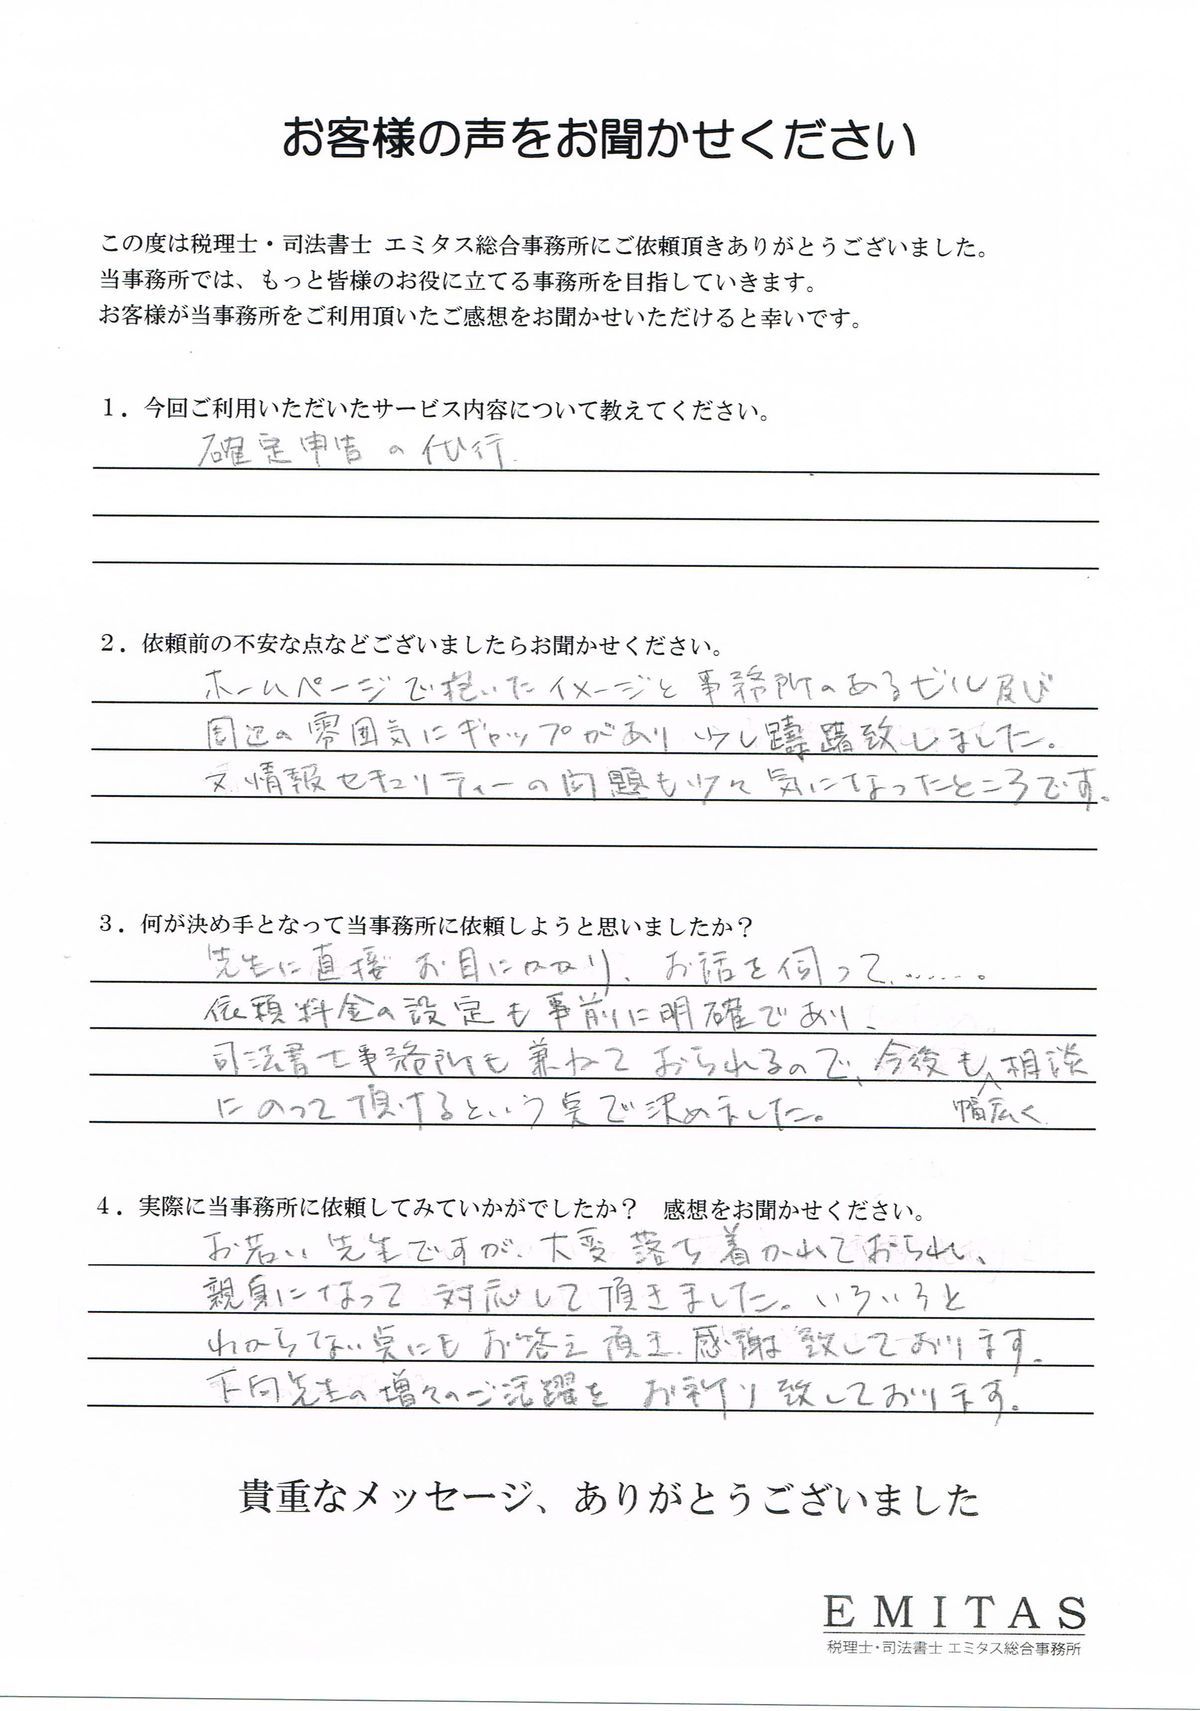 お客様の声をお聞かせください
この度は税理士・司法書士 エミタス総合事務所にご依頼頂きありがとうございました。
当事務所では、もっと皆様のお役に立てる事務所を目指していきます。
お客様が当事務所をご利用頂いたご感想をお聞かせいただけると幸いです。
１．今回ご利用いただいたサービス内容について教えてください。
確定申告の代行.
２．依頼前の不安な点などございましたらお聞かせください。
ホームページで抱いたイメージと 事務所のあるビル及び
周辺の雰囲気にギャップがあり 少し躊躇致しました。
又 情報セキュリティーの問題も少々 気になったところです。
３．何が決め手となって当事務所に依頼しようと思いましたか？
先生に直接 お目にかかり、お話を伺って………。
依頼料金の設定も事前に明確であり、
司法書士事務所も兼ねて おられるので、今後も幅広く相談
にのって頂けるという点で決めました。
４．実際に当事務所に依頼してみていかがでしたか？　感想をお聞かせください。
お若い先生ですが、大変落ち着かれておられ、
親身になって 対応して頂きました。いろいろと
わからない点にもお答え頂き、感謝致しております。
下向先生の増々のご活躍を お祈り致しております。
貴重なメッセージ、ありがとうございました
EMITAS
税理士・司法書士 エミタス総合事務所